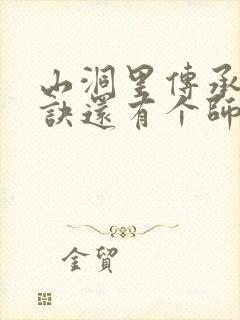 山洞里傳承
訣還有个師
金貿